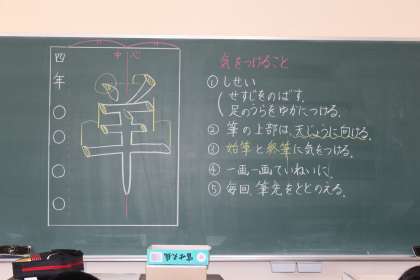 気をつけること
① しせい
せすじをのばす。
足のうらをゆかにつける。
② 筆の上部は、天じょうに向ける。
③ 始筆と終筆に気をつける。
④ 一画一画ていねいに。
⑤ 毎回、筆先をととのえる。
中心
四年